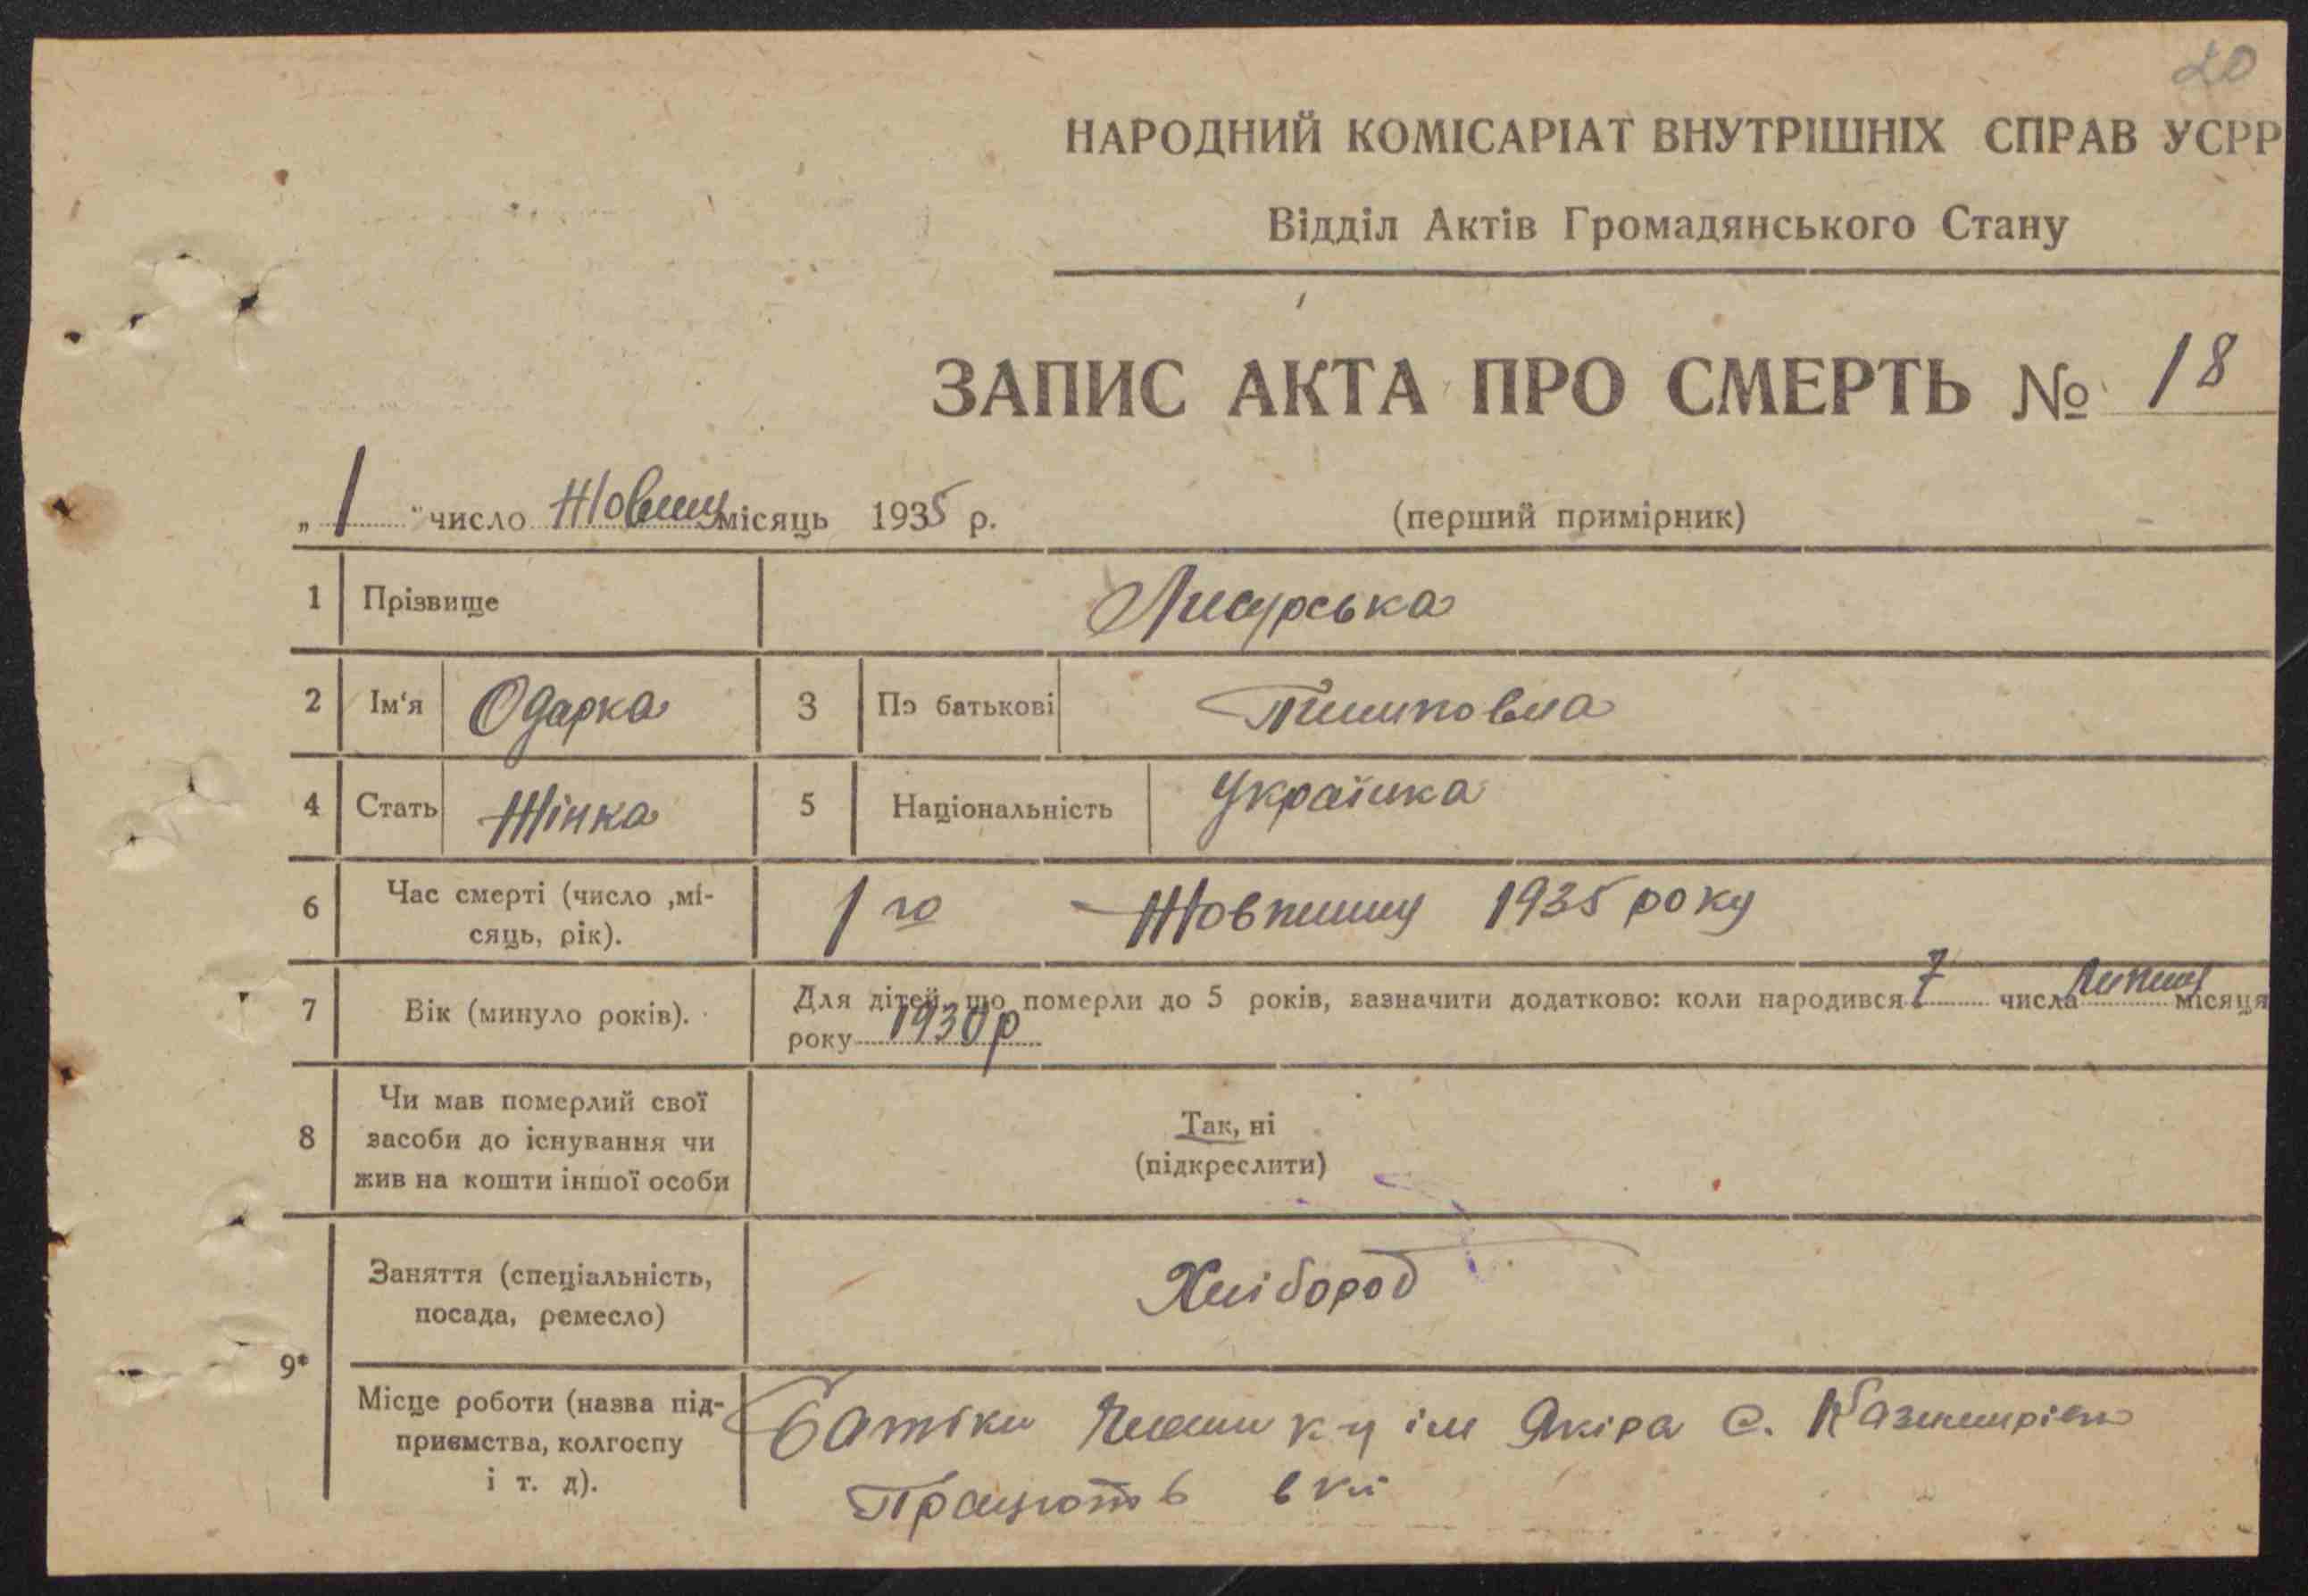 20
НАРОДНИЙ КОМІСАРІАТ ВНУТРІШНІХ СПРАВ УСРР
Відділ Актів Громадянського Стану
ЗАПИС АКТА ПРО СМЕРТЬ № 18
„ 1 " число місяць 1935 р. (перший примірник)
1 Прізвище
2 Ім‘я Одарка 3 По батькові
4 Стать Жінка 5 Національність Українка
6 Час смерті (число ,мі-
сяць, рік).
1 го Жовтню 1935 року
7 Вік (минуло років).
Для дітей, що померли до 5 років, зазначити додатково: коли народився 7 числа Липню місяця
року 1930 р
8 Чи мав померлий свої
засоби до існування чи
жив на кошти іншої особи
Так, ні
(підкреслити)
9* Заняття (спеціальність,
посада, ремесло)
Хлібороб
Місце роботи (назва під-
приємства, колгоспу
і т. д).
Батьки ім Якіра с.
Працюють в